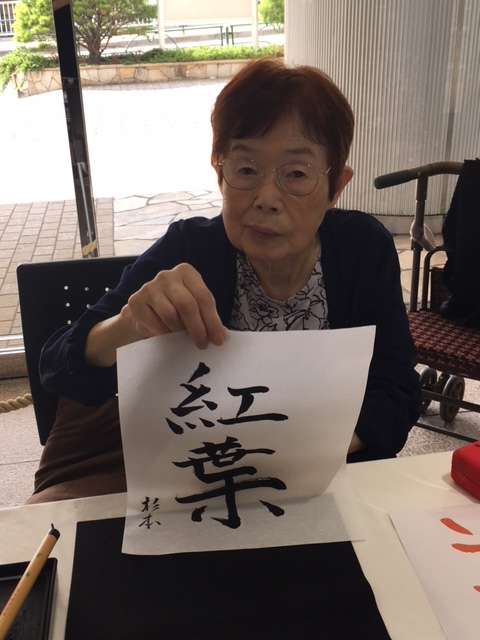 紅葉
杉本